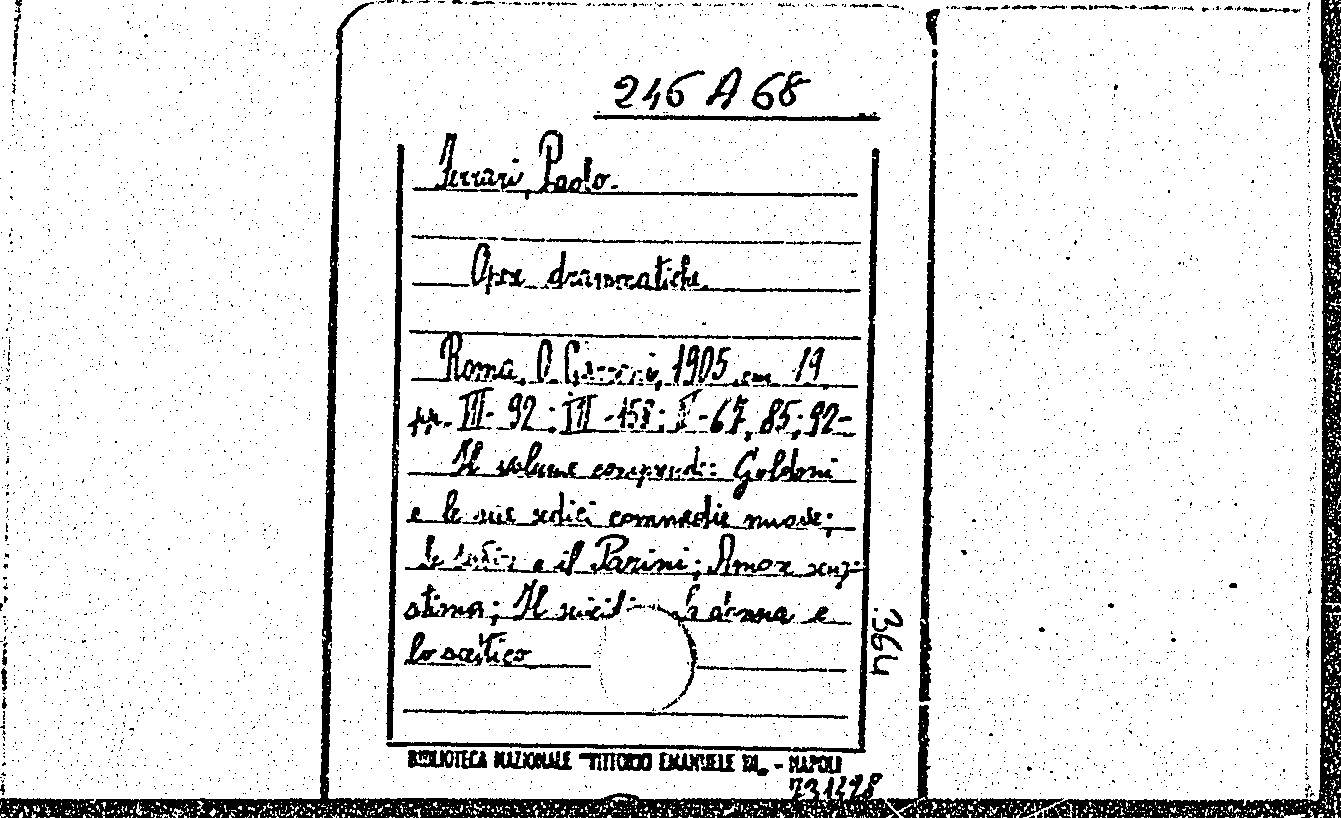 246 A 68
Ferrari, Paolo.
Opere drammatiche.
Roma, O. 1905 cm 19
pp. III-92; III-158; V-67, 85; 92-
Il volume comprende: Goldoni
e le sue sedici commedie nuove;
la satira e il Parini; Amor senza
stima; Il suicidio; La donna e
lo scettico
364
BIBLIOTECA NAZIONALE "VITTORIO EMANUELE III" - NAPOLI